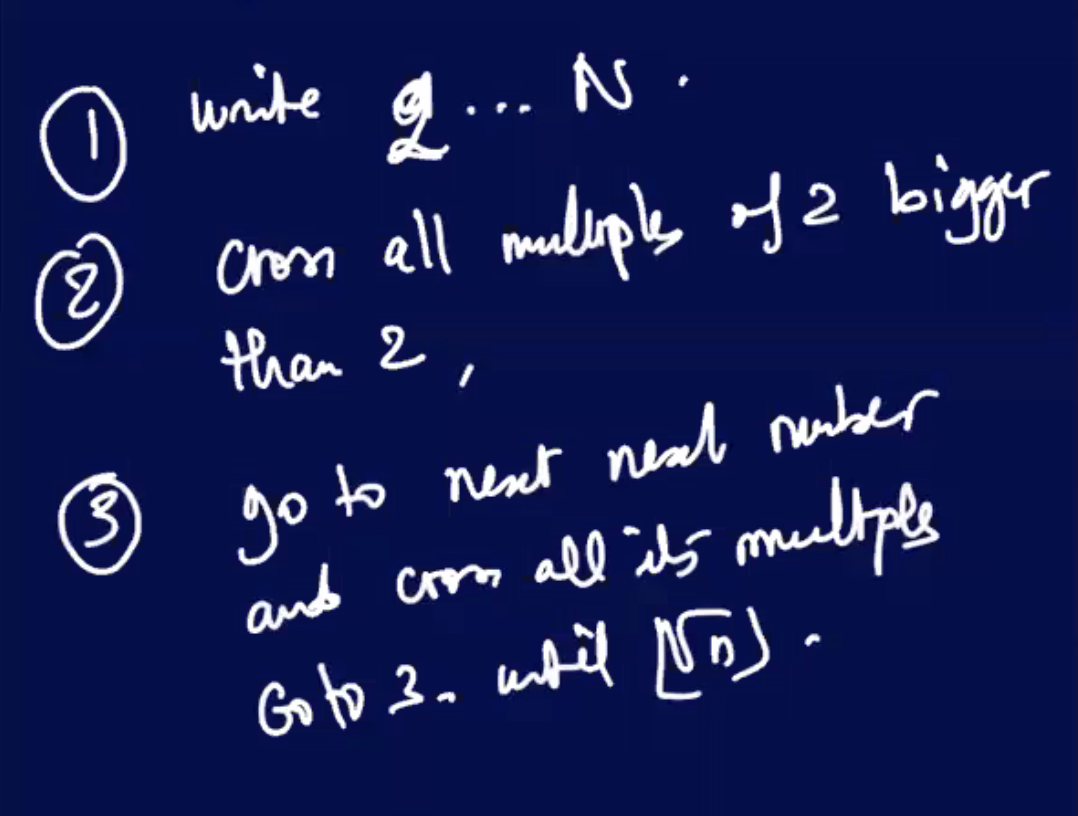 ① write 2 ... N .
② cross all multiples of 2 bigger
than 2 ,
③ go to next next number
and cross all its multiples
Go to 3. until ⌊√n⌋ .